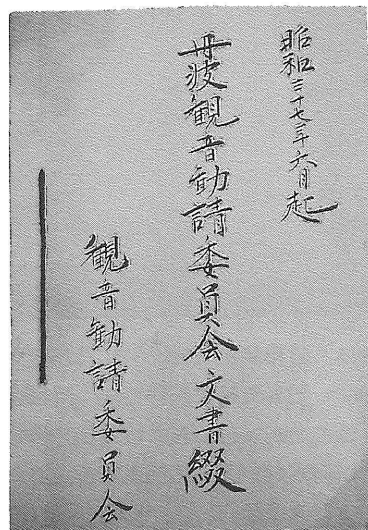 昭和三十七年六月起
丹波観音勧請委員会文書綴
観音勧請委員会